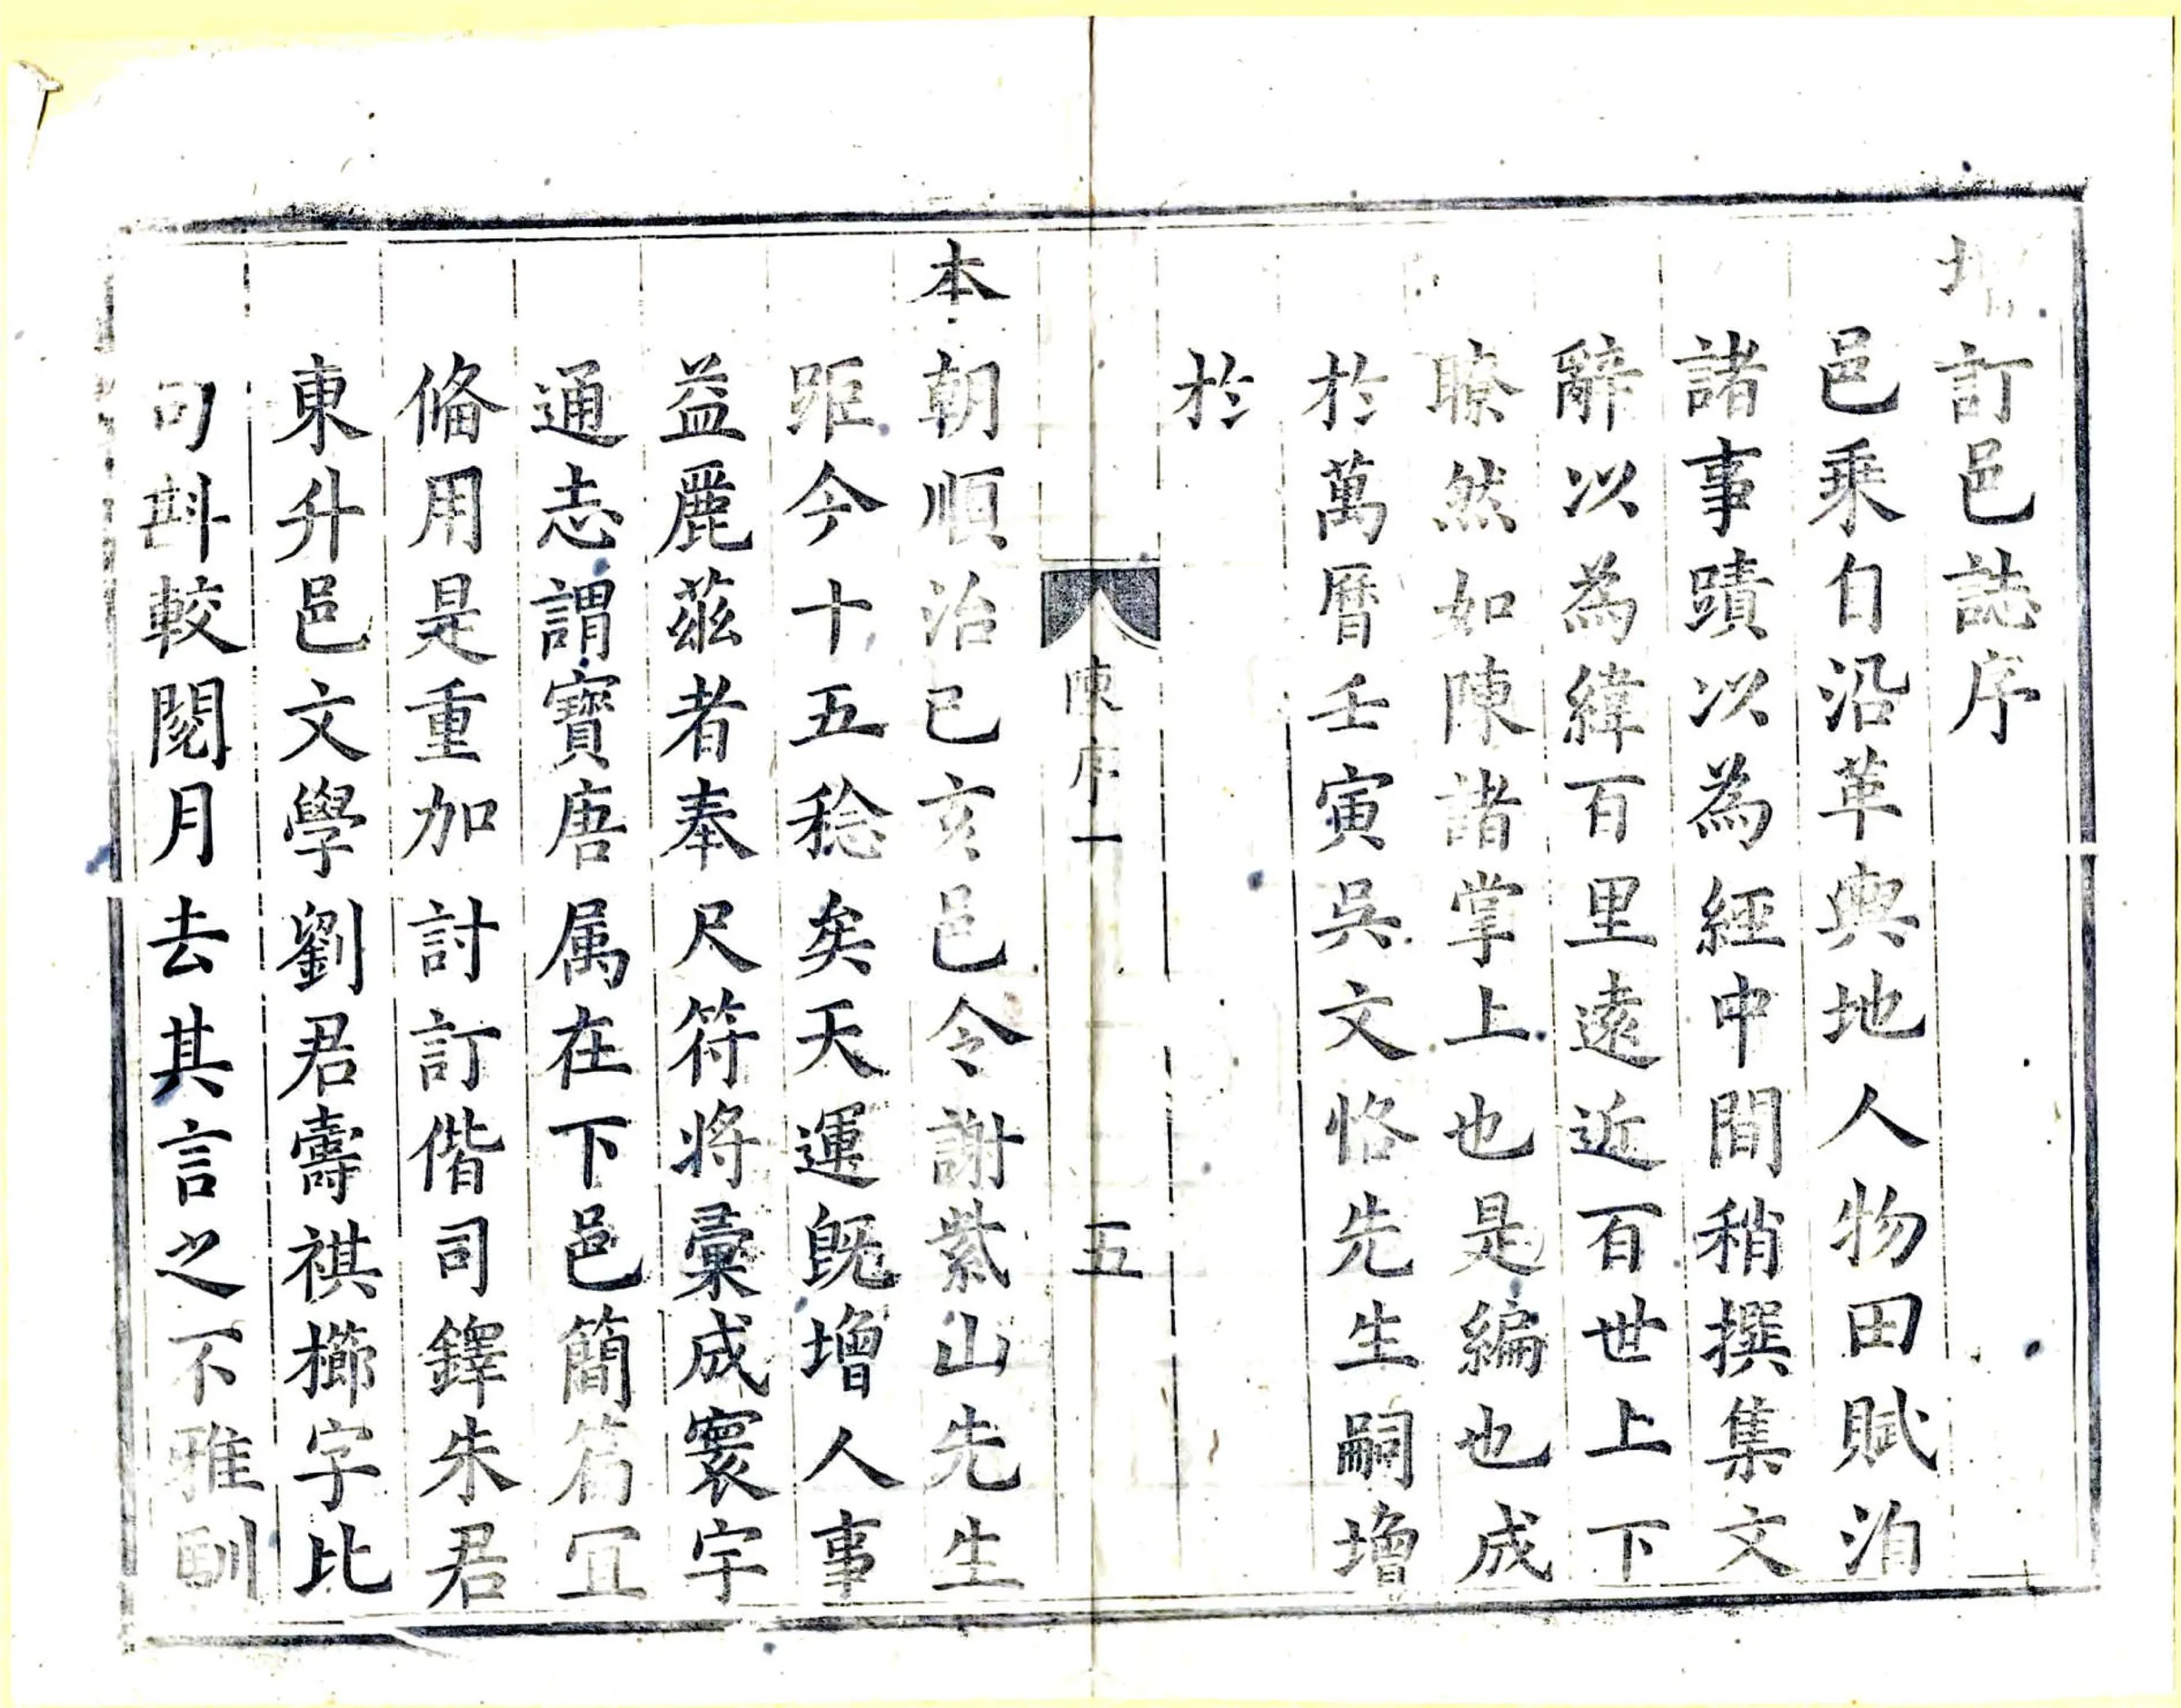 增訂邑誌序
邑乘自沿革輿地人物田賦洎
諸事蹟以為經中間稍撰集文
辭以為緯百里遠近百世上下
瞭然如陳諸掌上也是編也成
於萬曆壬寅吳文恪先生嗣增
於
陳序一
五
本朝順治己亥邑令謝紫山先生
距今十五稔矣天運既增人事
益麗茲者奉尺符將彙成寰宇
通志謂寶唐属在下邑簡茖冝
偹用是重加討訂偕司鐸朱君
東升邑文學劉君壽祺櫛字比
句斟較閱月去其言之不雅馴